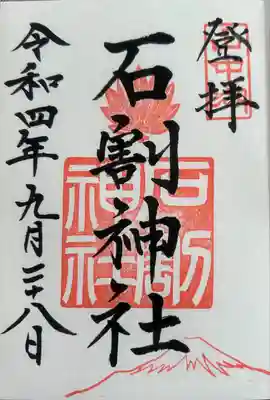 登拝
石割神社
令和四年九月二十八日
石割
神社